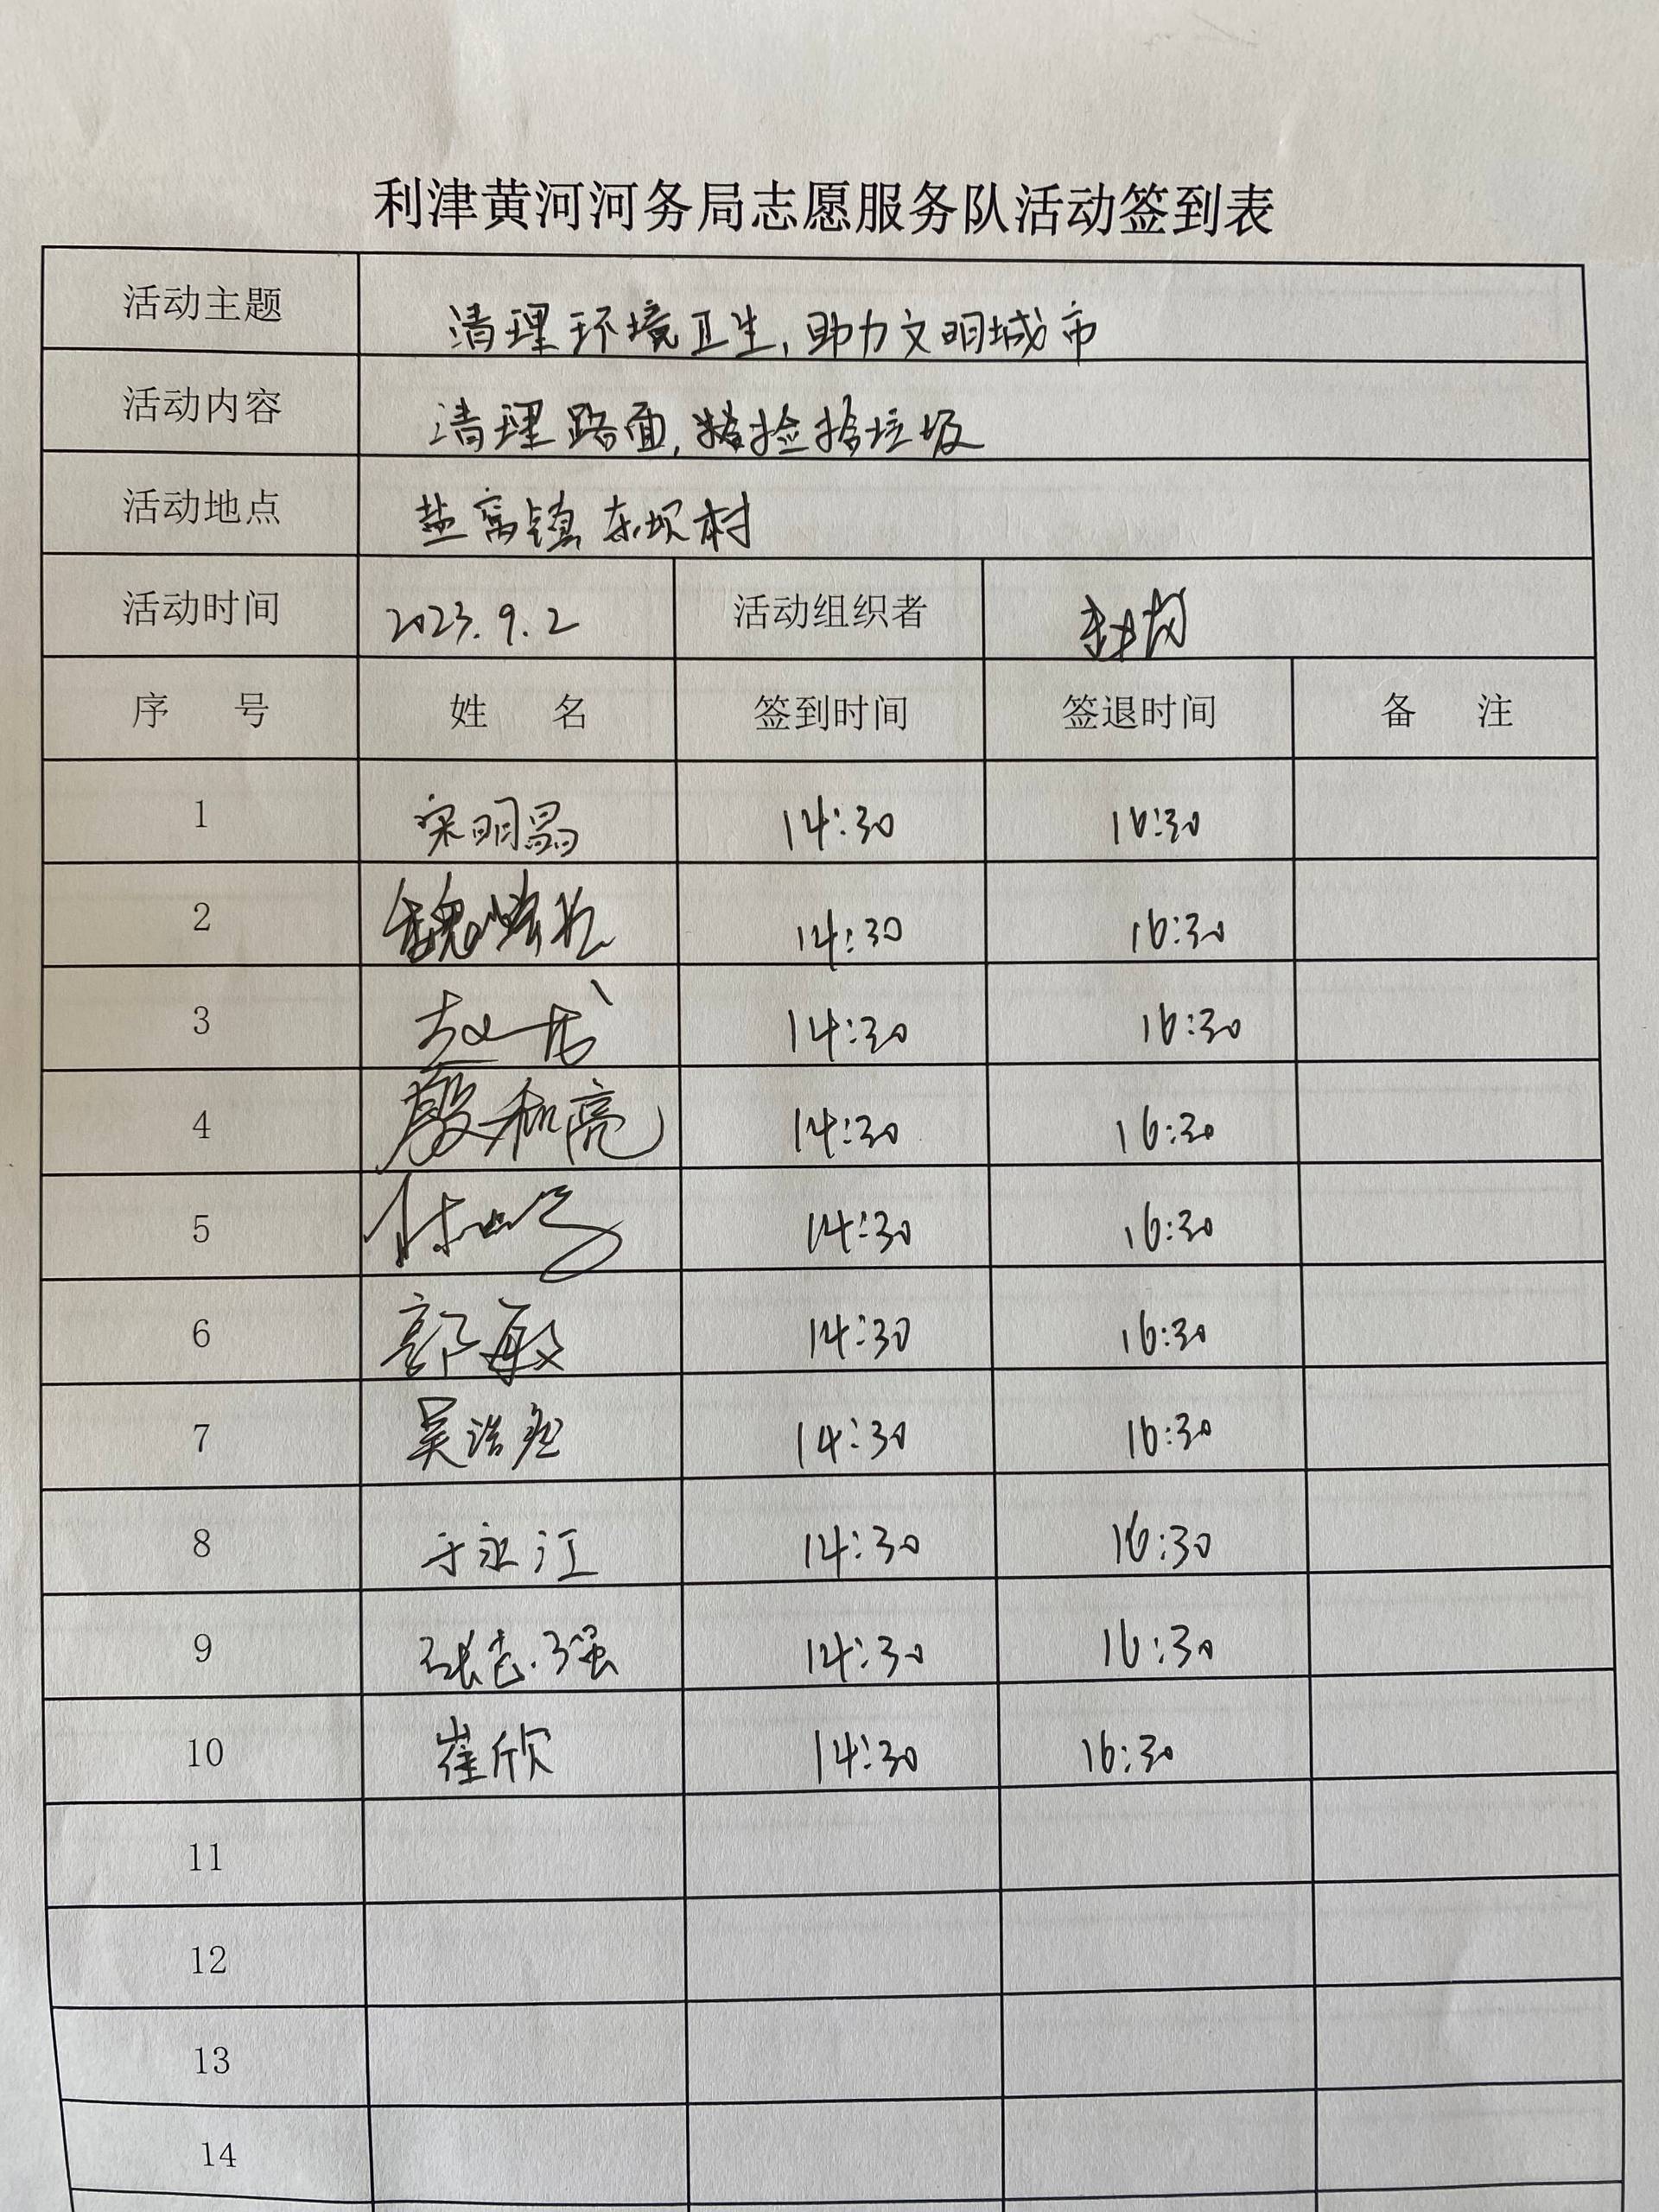 利津黄河河务局志愿服务队活动签到表
活动主题 清理环境卫生,助力文明城市
活动内容 清理路面,捡拾垃圾
活动地点 盐窝镇东坝村
活动时间 2023.9.2 活动组织者
序 号 姓 名 签到时间 签退时间 备 注
1 宋明昌 14:30 16:30
2 魏 14:30 16:30
3 赵 14:30 16:30
4 殷和亮 14:30 16:30
5 14:30 16:30
6 郭敏 14:30 16:30
7 吴浩 14:30 16:30
8 于永江 14:30 16:30
9 张志强 14:30 16:30
10 崔欣 14:30 16:30
11
12
13
14